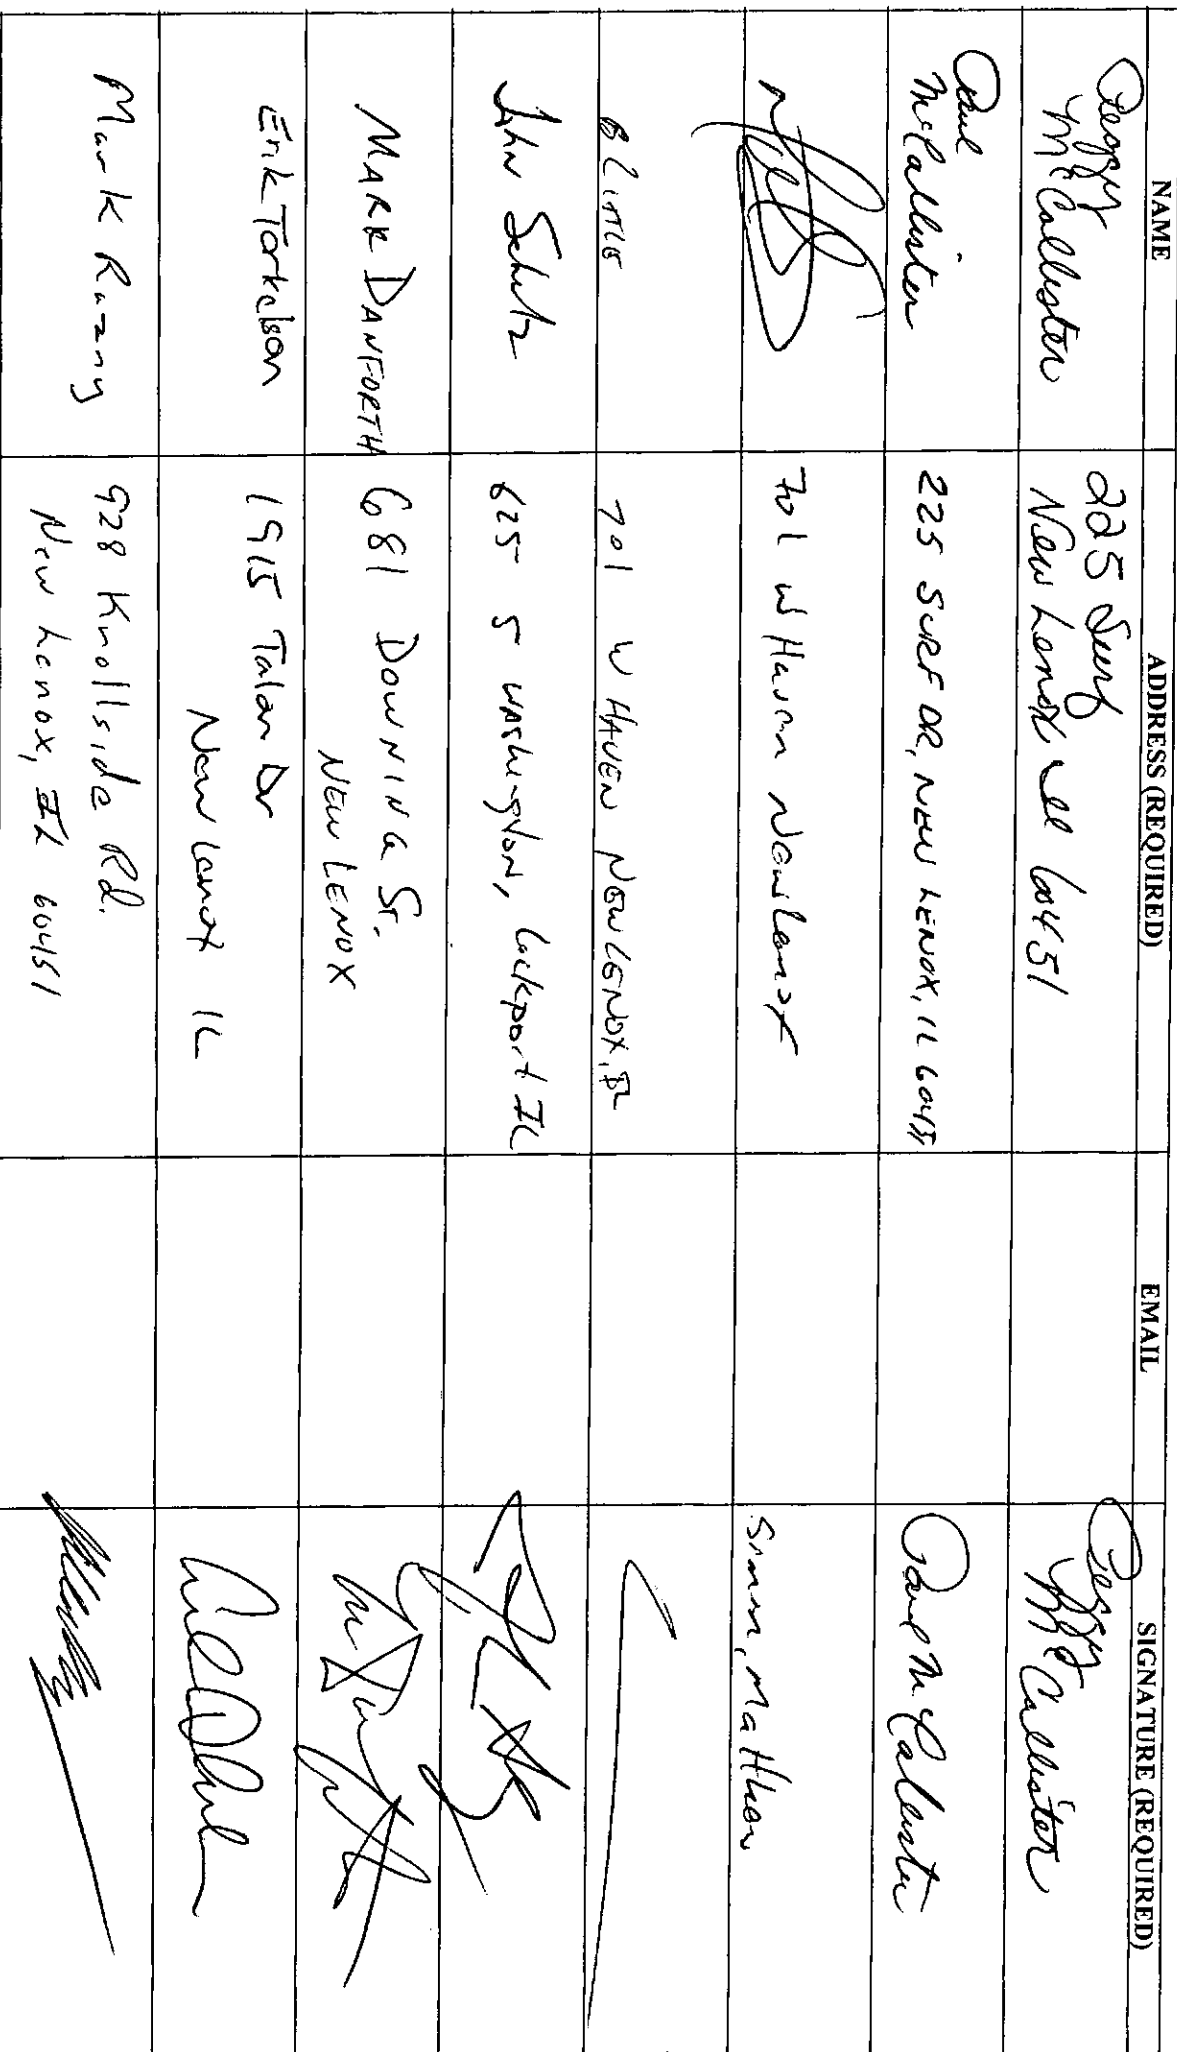 NAME ADDRESS (REQUIRED) EMAIL SIGNATURE (REQUIRED)
Peggy McCallister 225 Surf Peggy McCallister
New Lenox Ill 60451
Paul McCallister 225 SURF DR, NEW LENOX, IL 60451 Paul McCallister
701 W Haven New Lenox Simon, Matthew
B Little 701 W HAVEN NEW LENOX, IL
John Schultz 625 S Washington, Lockport IL
MARK DANFORTH 681 DOWNING ST.
NEW LENOX
Erik Torkelson 1915 Talon Dr
New Lenox IL
Mark Ruzny 928 Knollside Rd.
New Lenox, IL 60451